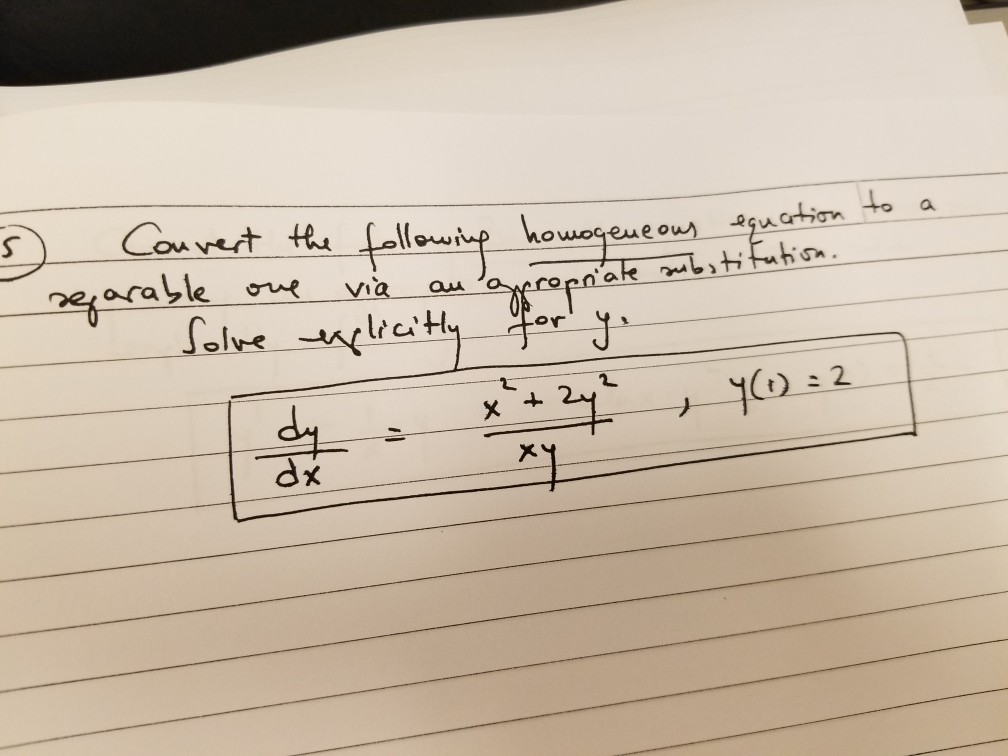 5 Convert the following homogeneous equation to a
separable one via an appropriate substitution.
Solve explicitly for y.
dy/dx = (x² + 2y²)/(xy) , y(1) = 2